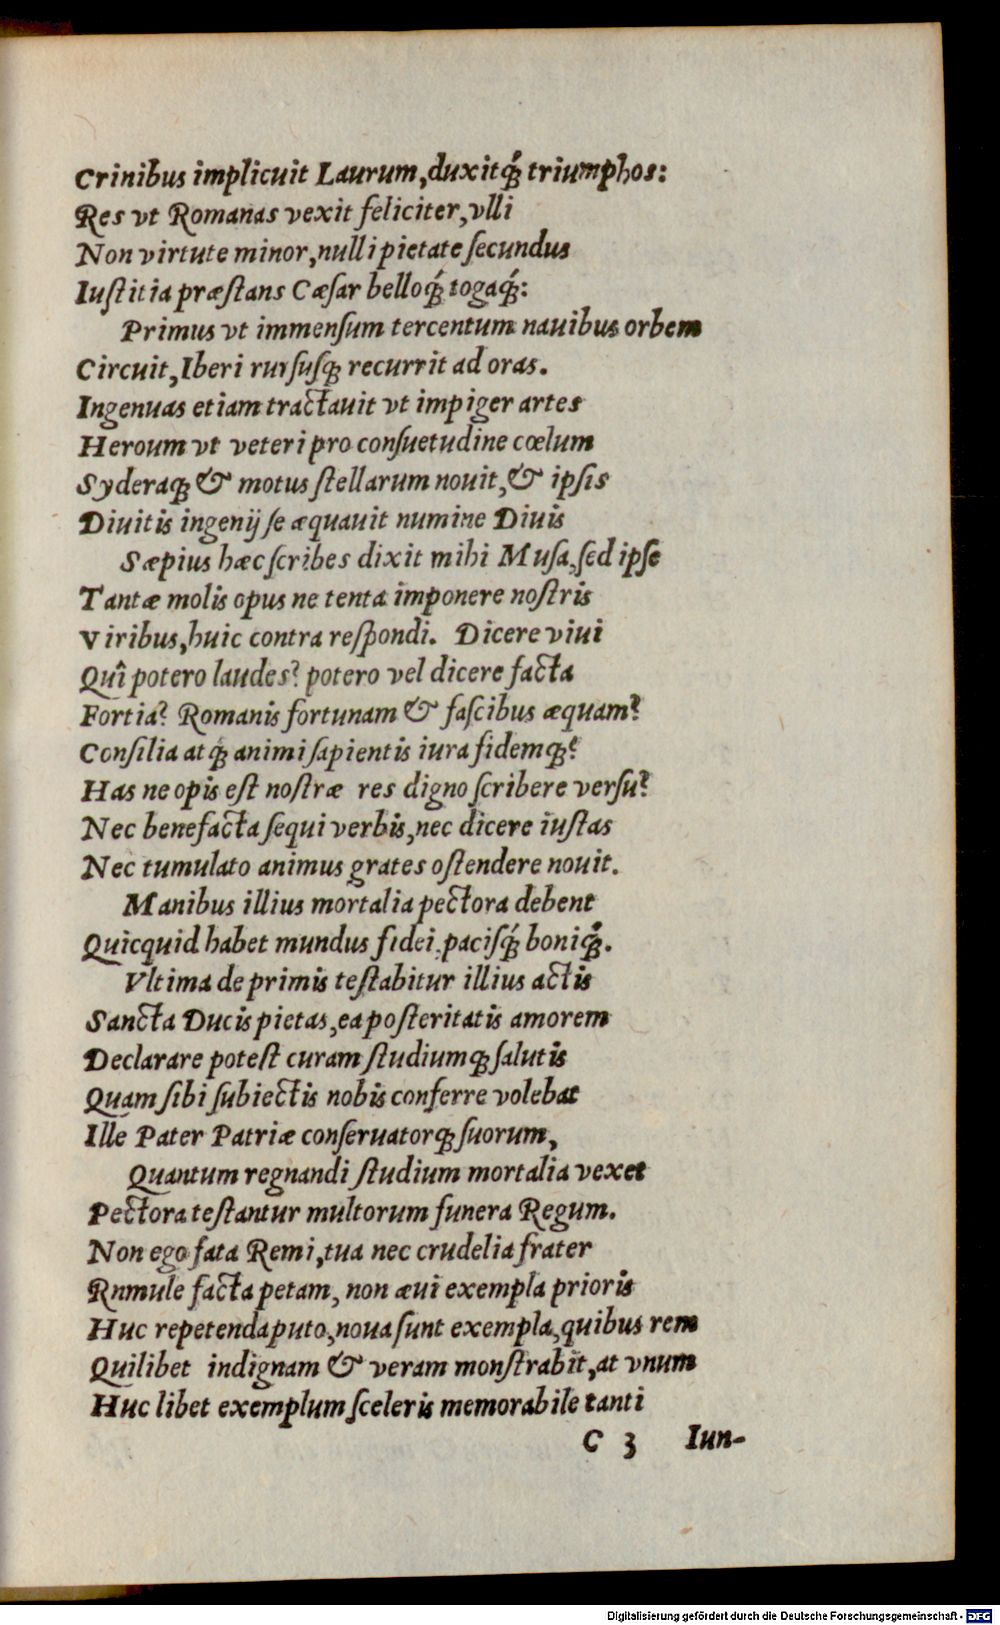 Crinibus implicuit Laurum, duxitq́; triumphos:
Res vt Romanas vexit feliciter, vlli
Non virtute minor, nulli pietate ſecundus
Iuſtitia præſtans Cæſar belloq́; togaq́;:
Primus vt immenſum tercentum nauibus orbem
Circuit, Iberi rurſuſq; recurrit ad oras.
Ingenuas etiam tractauit vt impiger artes
Heroum vt veteri pro conſuetudine cœlum
Syderaq; & motus ſtellarum nouit, & ipſis
Diuitis ingenij ſe æquauit numine Diuis
Sæpius hæc ſcribes dixit mihi Muſa, ſed ipſe
Tantæ molis opus ne tenta imponere noſtris
Viribus, huic contra reſpondi. Dicere viui
Quî potero laudes? potero vel dicere facta
Fortia? Romanis fortunam & faſcibus æquam?
Conſilia atq; animi ſapientis iura fidemq;?
Has ne opis eſt noſtræ res digno ſcribere verſu?
Nec benefacta ſequi verbis, nec dicere iuſtas
Nec tumulato animus grates oſtendere nouit.
Manibus illius mortalia pectora debent
Quicquid habet mundus fidei, paciſq́; boniq́;.
Vltima de primis teſtabitur illius actis
Sancta Ducis pietas, ea poſteritatis amorem
Declarare poteſt curam ſtudiumq; ſalutis
Quam ſibi ſubiectis nobis conferre volebat
Ille Pater Patriæ conſeruatorq; ſuorum,
Quantum regnandi ſtudium mortalia vexet
Pectora teſtantur multorum funera Regum.
Non ego fata Remi, tua nec crudelia frater
Rnmule facta petam, non æui exempla prioris
Huc repetenda puto, noua ſunt exempla, quibus rem
Quilibet indignam & veram monſtrabit, at vnum
Huc libet exemplum ſceleris memorabile tanti
C 3 Iun-
Digitalisierung gefördert durch die Deutsche Forschungsgemeinschaft - DFG